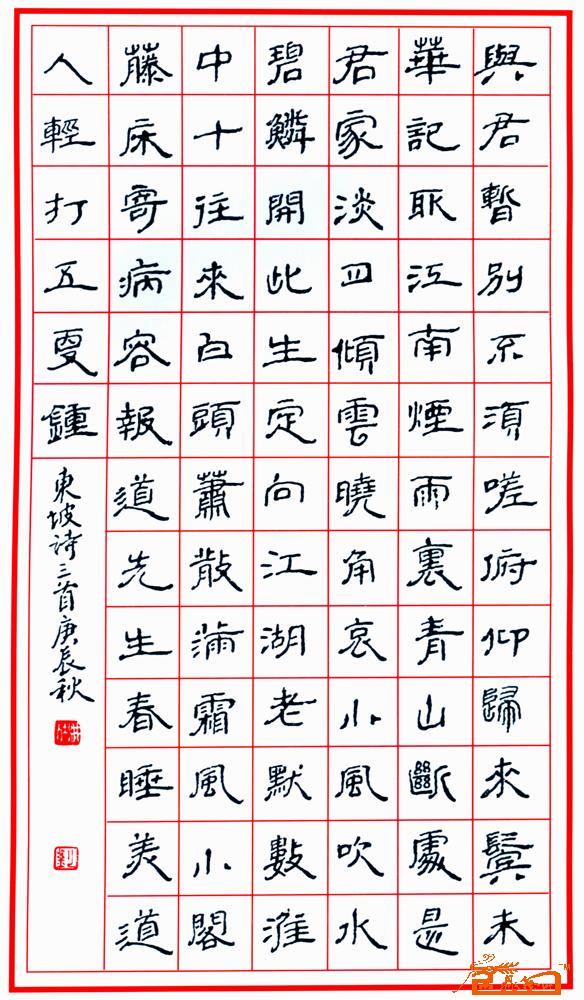 與君暫別不須嗟俯仰歸來鬢未
華記取江南煙雨裏青山斷處是
君家淡月傾雲曉角哀小風吹水
碧鱗開此生定向江湖老默數淮
中十往來白頭蕭散滿霜風小閣
藤床寄病容報道先生春睡美道
人輕打五更鍾
東坡诗三首庚辰秋